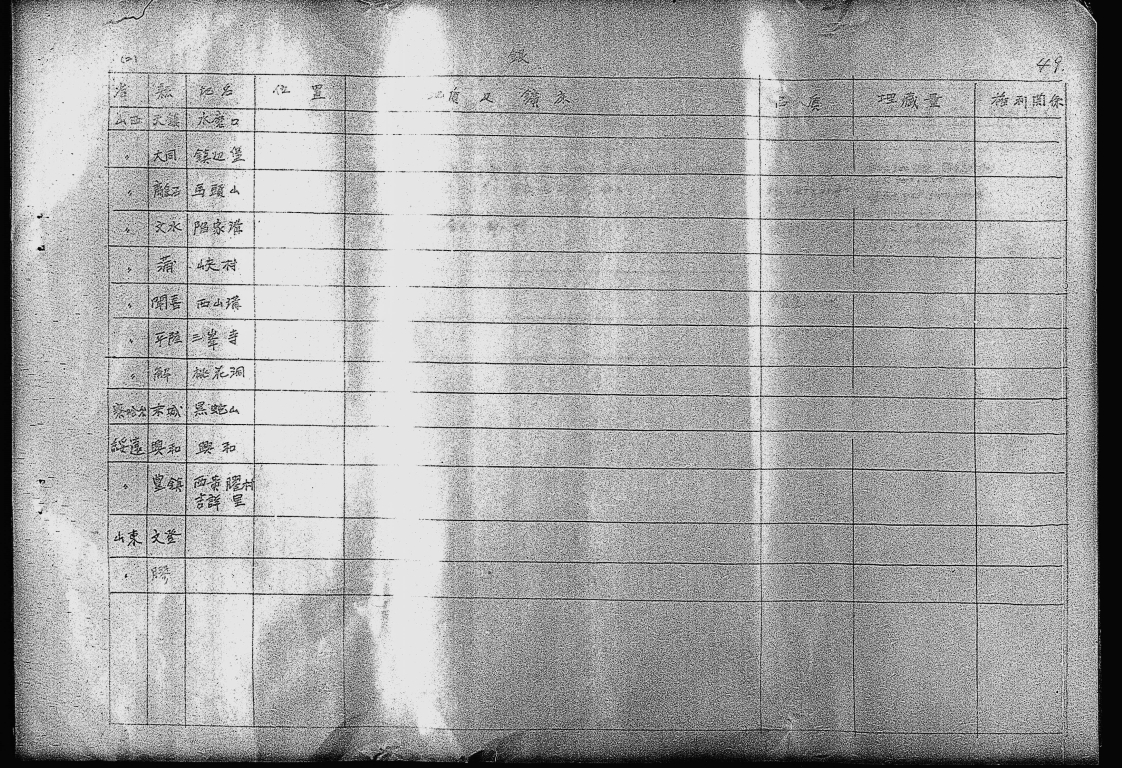 (2) 銀 49.
省 縣 地名 位置 地質及鑛床 品度 埋藏量 権利関係
山西 天鎮 水磨口
〃 大同 鎮辺堡
〃 離石 馬頭山
〃 文水 陥家溝
〃 蒲 峡村
〃 聞喜 西山溝
〃 平陸 三峯寺
〃 解 桃花洞
察哈尓 赤城 黒蛇山
綏遠 興和 興和
〃 豊鎮 西黄 村
吉祥里
山東 文登
〃 膠